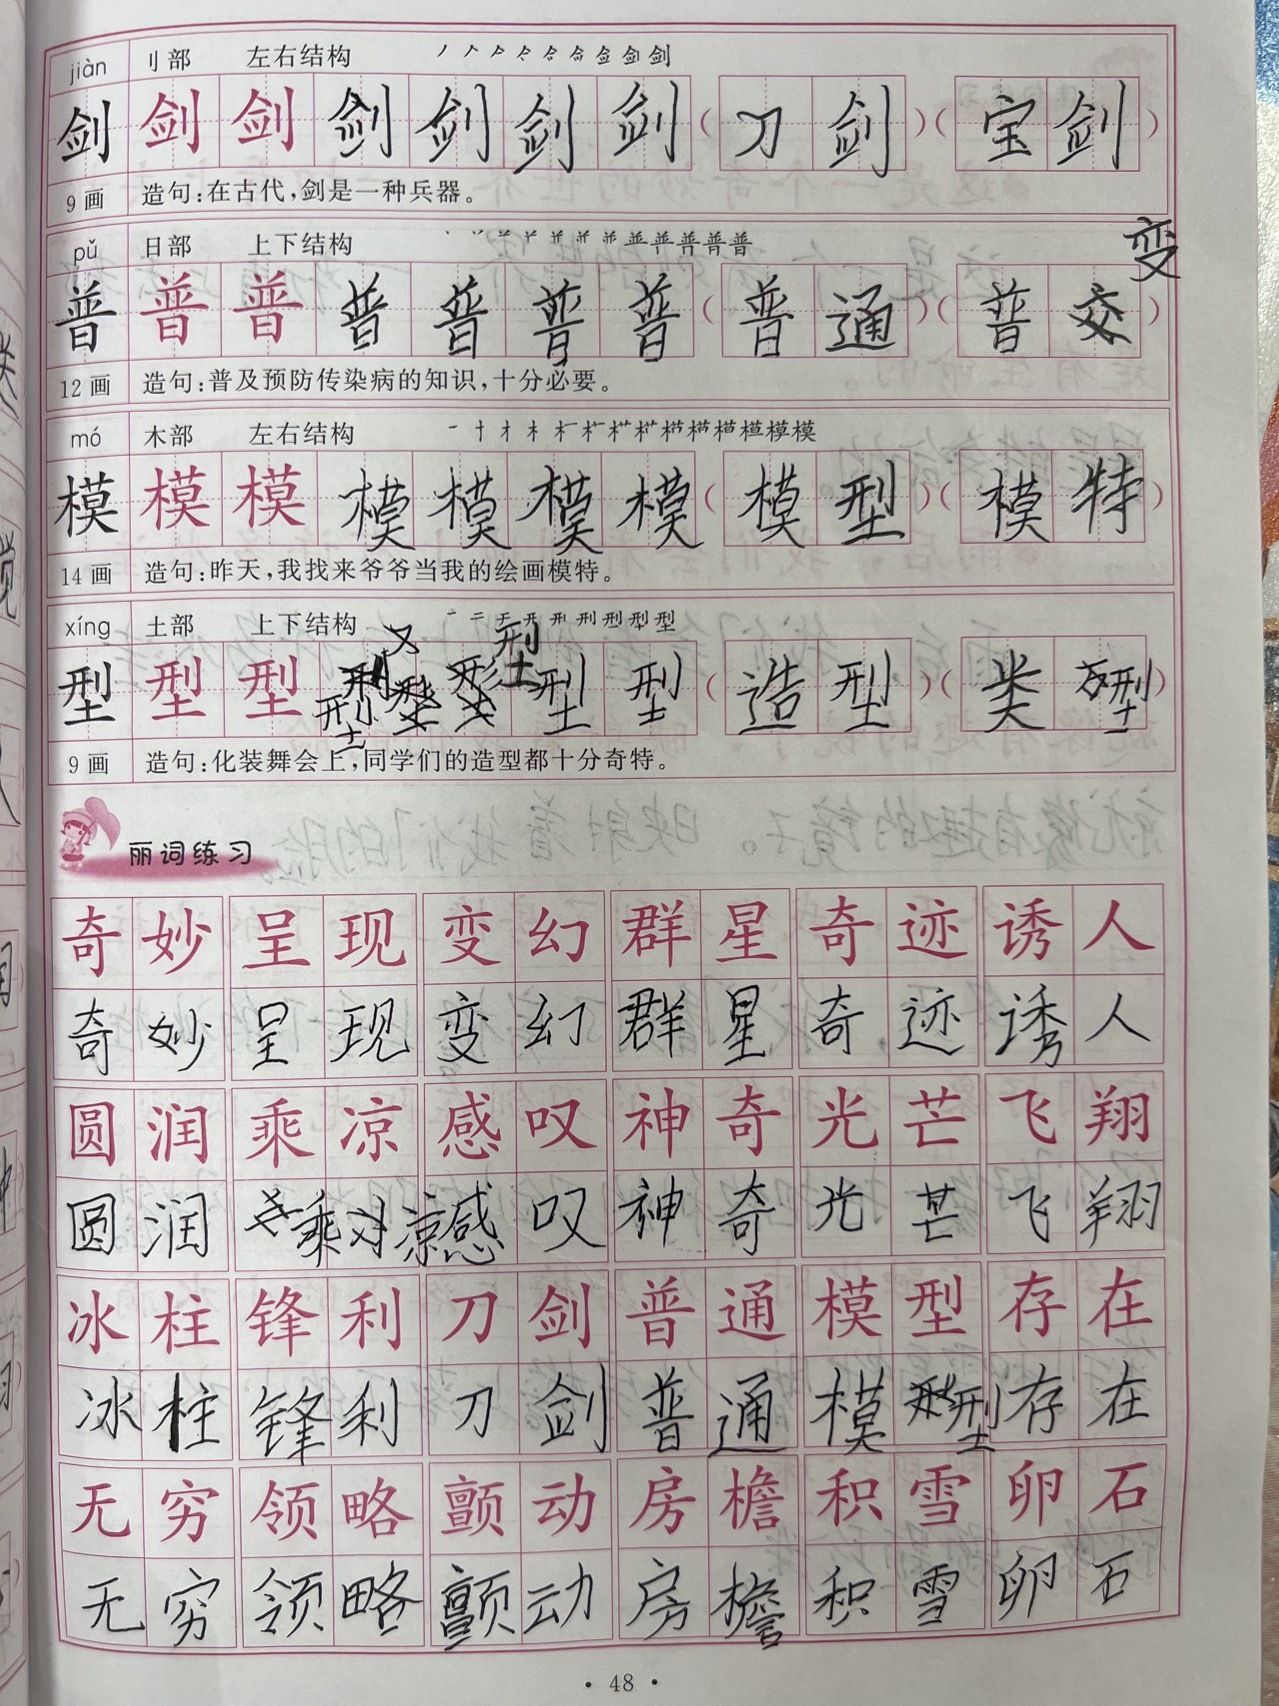 jiàn 刂部 左右结构
剑 剑 剑 剑 剑 剑 剑 ( 刀 剑 ) ( 宝 剑 )
9画 造句:在古代,剑是一种兵器。
pǔ 日部 上下结构
变
普 普 普 普 普 普 普 ( 普 通 ) ( 普 )
12画 造句:普及预防传染病的知识,十分必要。
mó 木部 左右结构
模 模 模 模 模 模 模 ( 模 型 ) ( 模 特 )
14画 造句:昨天,我找来爷爷当我的绘画模特。
xíng 土部 上下结构
型
型 型 型 型 型 型 ( 造 型 ) ( 类 型 )
9画 造句:化装舞会上,同学们的造型都十分奇特。
丽词练习
奇妙 呈现 变幻 群星 奇迹 诱人
奇妙 呈现 变幻 群星 奇迹 诱人
圆润 乘凉 感叹 神奇 光芒 飞翔
圆润 乘 凉 感叹 神奇 光芒 飞翔
冰柱 锋利 刀剑 普通 模型 存在
冰柱 锋利 刀剑 普通 模 型 存在
无穷 领略 颤动 房檐 积雪 卵石
无穷 领略 颤动 房檐 积雪 卵石
·48·